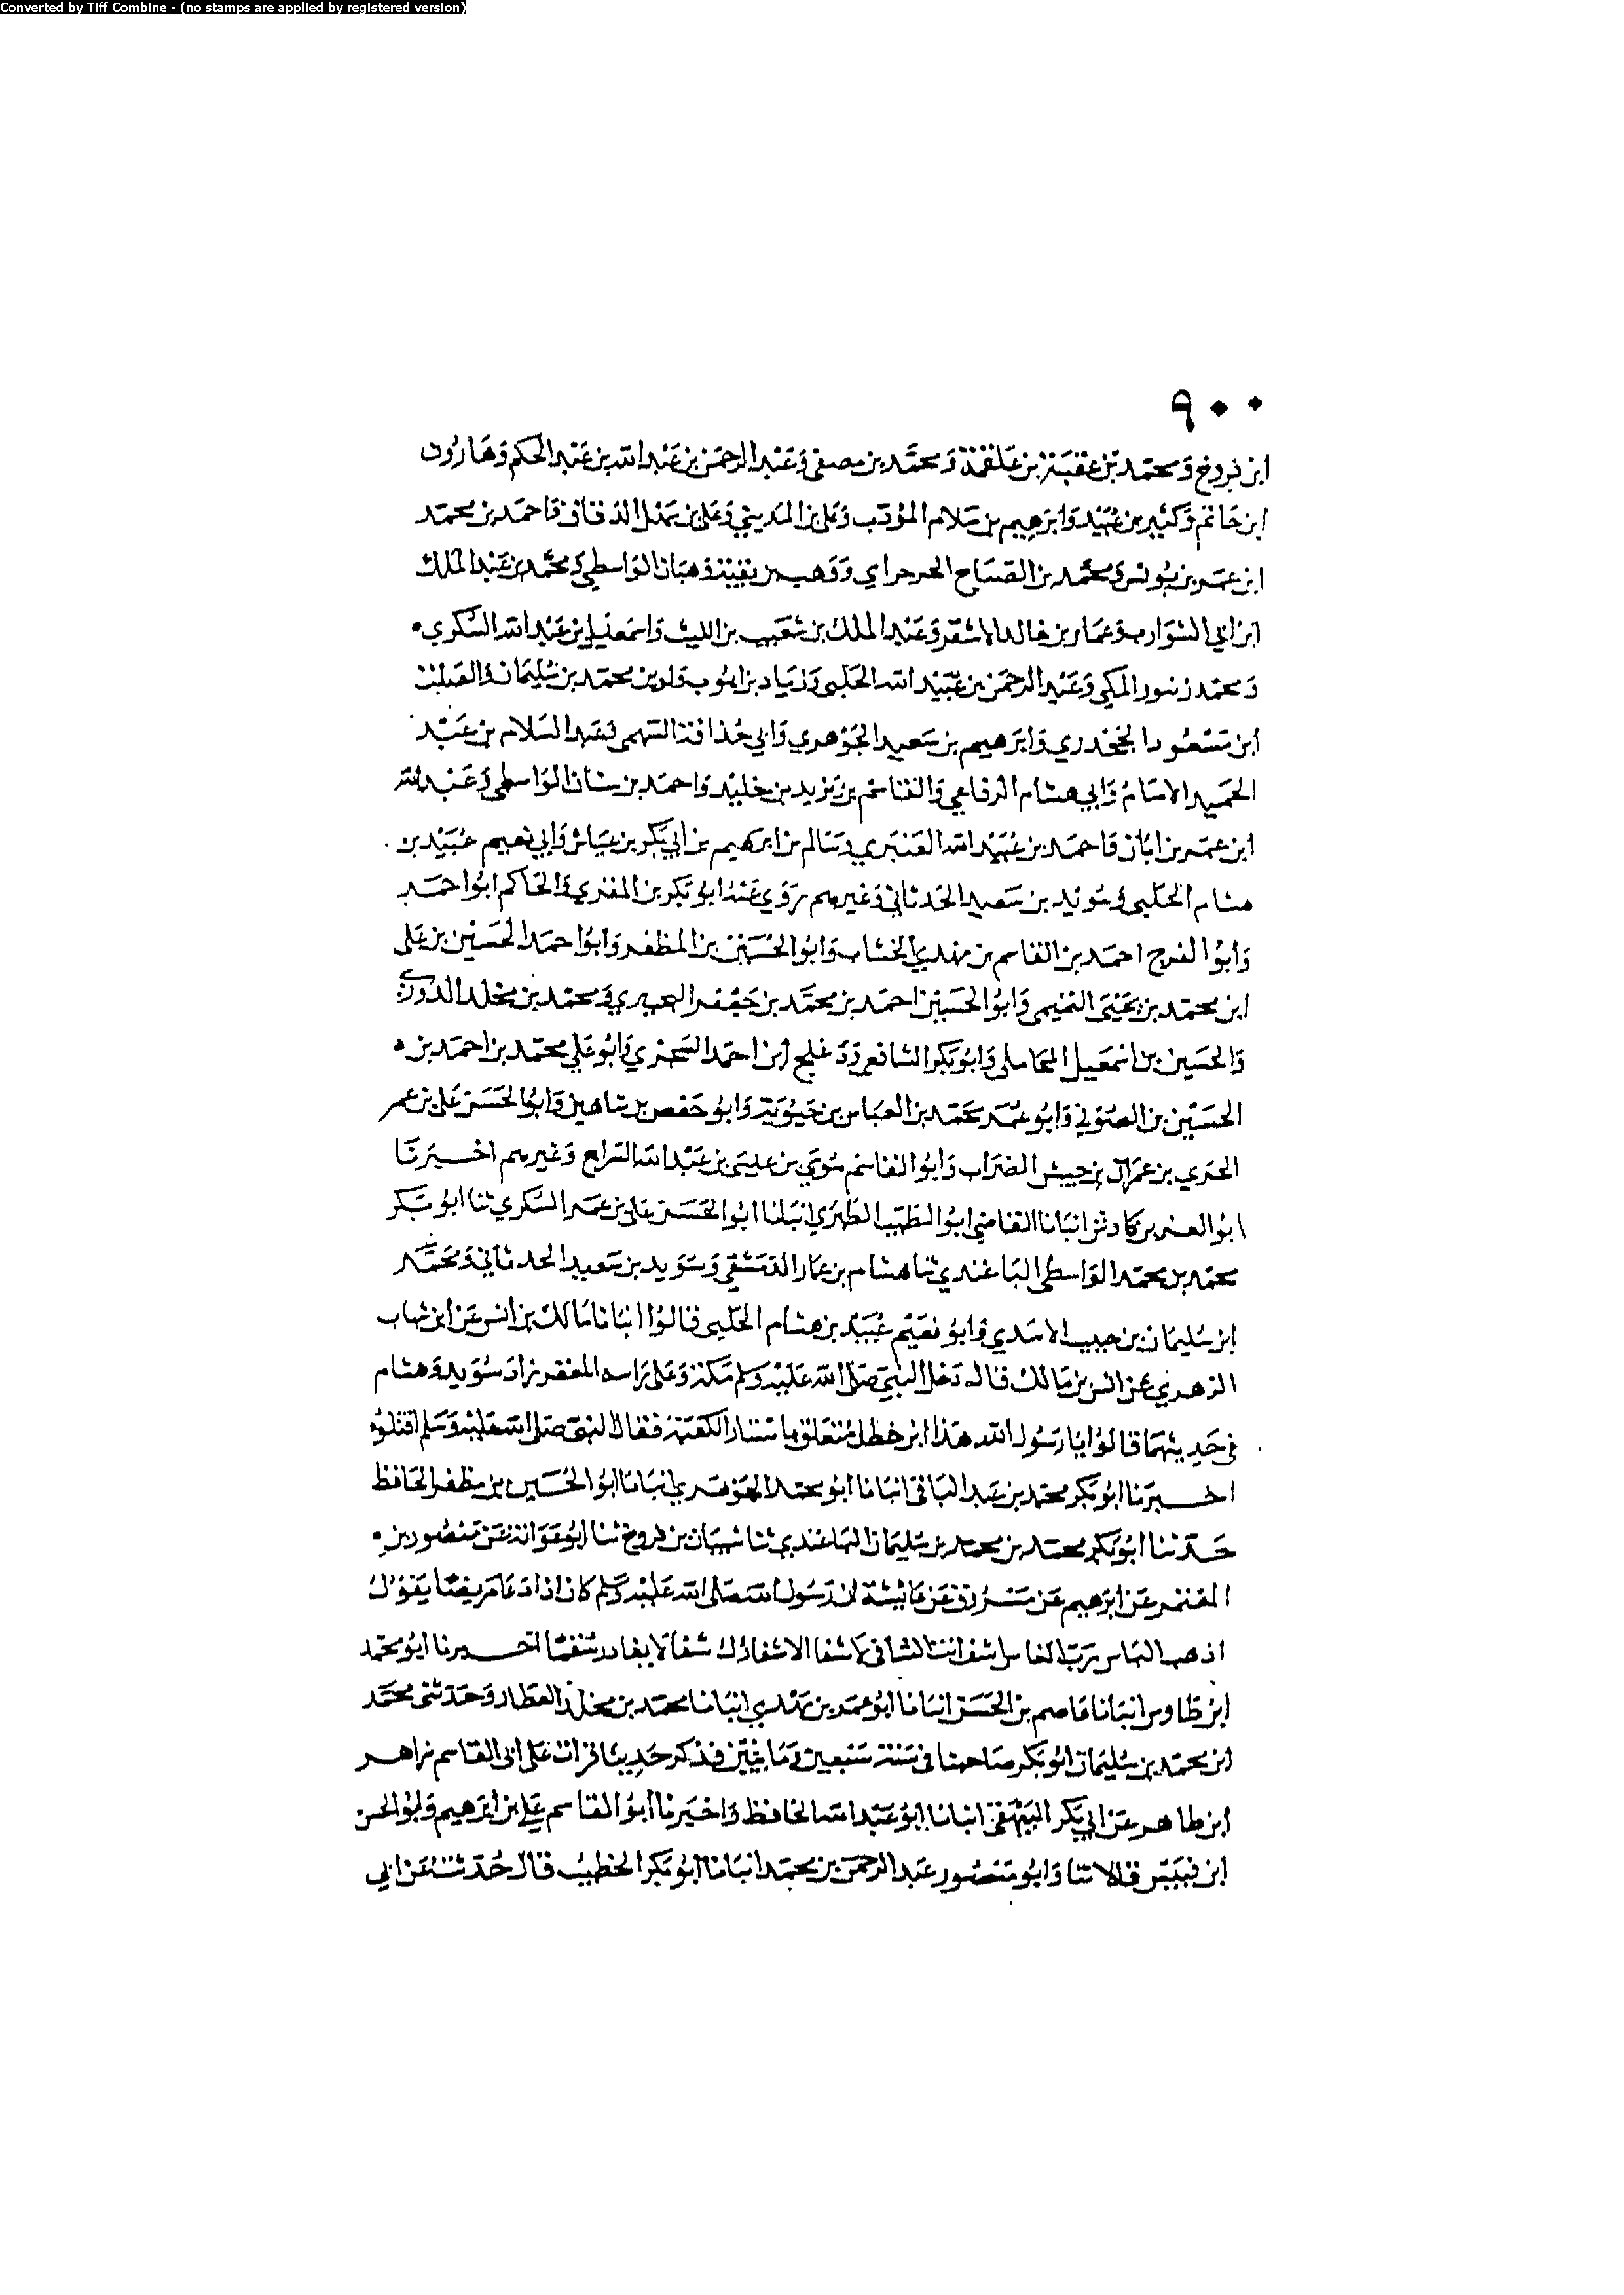 Converted by Tiff Combine - (no stamps are applied by registered version)
٩٠٠
ابن فروخ ومحمد بن عقبة بن علقمة ومحمد بن مصفى وعبد الرحمن بن عبد الله بن عبد الحكم وهارون
ابن حاتم وكثير بن عبيد وابرهيم بن سلام المؤدب وعلي بن المديني وعلي بن سهل الدقاق واحمد بن محمد
ابن عمر بن يونس ومحمد بن الصباح الجرجراي ووهب بن بقية وهبان الواسطي ومحمد بن عبد الملك
ابن ابي الشوارب وعمار بن خالد الاشقر وعبد الملك بن شعيب بن الليث واسمعيل بن عبد الله السكري
ومحمد زنبور المكي وعبد الرحمن بن عبيد الله الحلبي وزياد بن ايوب ولوين محمد بن سليمان والصلت
ابن مسعود الجحدري وابرهيم بن سعيد الجوهري وابي حذافة السهمي وعبد السلام بن عبد
الحميد الامام وابي هشام الرفاعي والقاسم بن يزيد بن خليد واحمد بن سنان الواسطي وعبد الله
ابن عمر بن ابان واحمد بن عبيد الله العنبري وسالم بن ابرهيم بن ابي بكر بن عياش وابي نعيم عبيد بن
هشام الحلبي وسويد بن سعيد الحدثاني وغيرهم روي عنه ابو بكر بن المقري والحاكم ابوا حمد
وابوا الفرج احمد بن القاسم بن مهدي الخشاب وابوا الحسين بن المظفر وابوا حمد الحسين بن علي
ابن محمد بن يحيى التميمي وابوا الحسين احمد بن محمد بن جعفر ومحمد بن مخلد الدوري
والحسين بن اسمعيل المحاملي وابو بكر الشافعي ودعلج ابن احمد السجزي وابو علي محمد بن احمد بن
الحسين بن الصوفي وابو عمر محمد بن العباس بن حيوية وابو حفص بن شاهين وابوا الحسن علي بن عمر
الحربي بن عمران بن حبيش الضراب وابوا القاسم موسى بن عيسى بن عبد الله السراج وغيرهم اخبرنا
ابوا العز بن كادش انبانا القاضي ابوا الطيب الطبري انبانا ابوا الحسن علي بن عمر السكري ثنا ابو بكر
محمد بن محمد الواسطي الباغندي ثنا هشام بن عمار الدمشقي وسويد بن سعيد الحدثاني ومحمد
ابن سليمان بن حبيب الاسدي وابو نعيم عبيد بن هشام الحلبي قالوا انبانا مالك بن انس عن ابن شهاب
الزهري عن انس بن مالك قال دخل النبي صلى الله عليه وسلم مكة وعلى راسه المغفر زاد سويد وهشام
في حديثهما قالوا يا رسول الله هذا ابن خطل متعلق باستار الكعبة فقال النبي صلى الله عليه وسلم اقتلوه
اخبرنا ابو بكر محمد بن عبد الباقي انبانا ابو محمد الجوهري انبانا ابوا الحسين بن مظفر الحافظ
حدثنا ابو بكر محمد بن محمد بن سليمان الباغندي ثنا شيبان بن فروخ ثنا ابو عوانة عن منصور بن
المعتمر عن ابرهيم عن مسروق عن عائشة ان رسول الله صلى الله عليه وسلم كان اذا دعا مريضا يقول
اذهب الباس رب الناس اشف انت الشافي لا شفا الا شفاؤك شفا لا يغادر سقما اخبرنا ابو محمد
ابن طاوس انبانا عاصم بن الحسن انبانا ابو عمر بن مهدي انبانا محمد بن مخلد العطار وحدثني محمد
ابن محمد بن سليمان ابو بكر صاحبنا في سنة سبعين ومايتين فذكر حديثا قرات على ابي القاسم زاهر
ابن طاهر عن ابي بكر البيهقي انبانا ابو عبد الله الحافظ واخبرنا ابوا القاسم علي بن ابرهيم وابوا الحسن
ابن قبيس قالا ثنا وابو منصور عبد الرحمن بن محمد انبانا ابو بكر الخطيب قال حدثت عن ابي